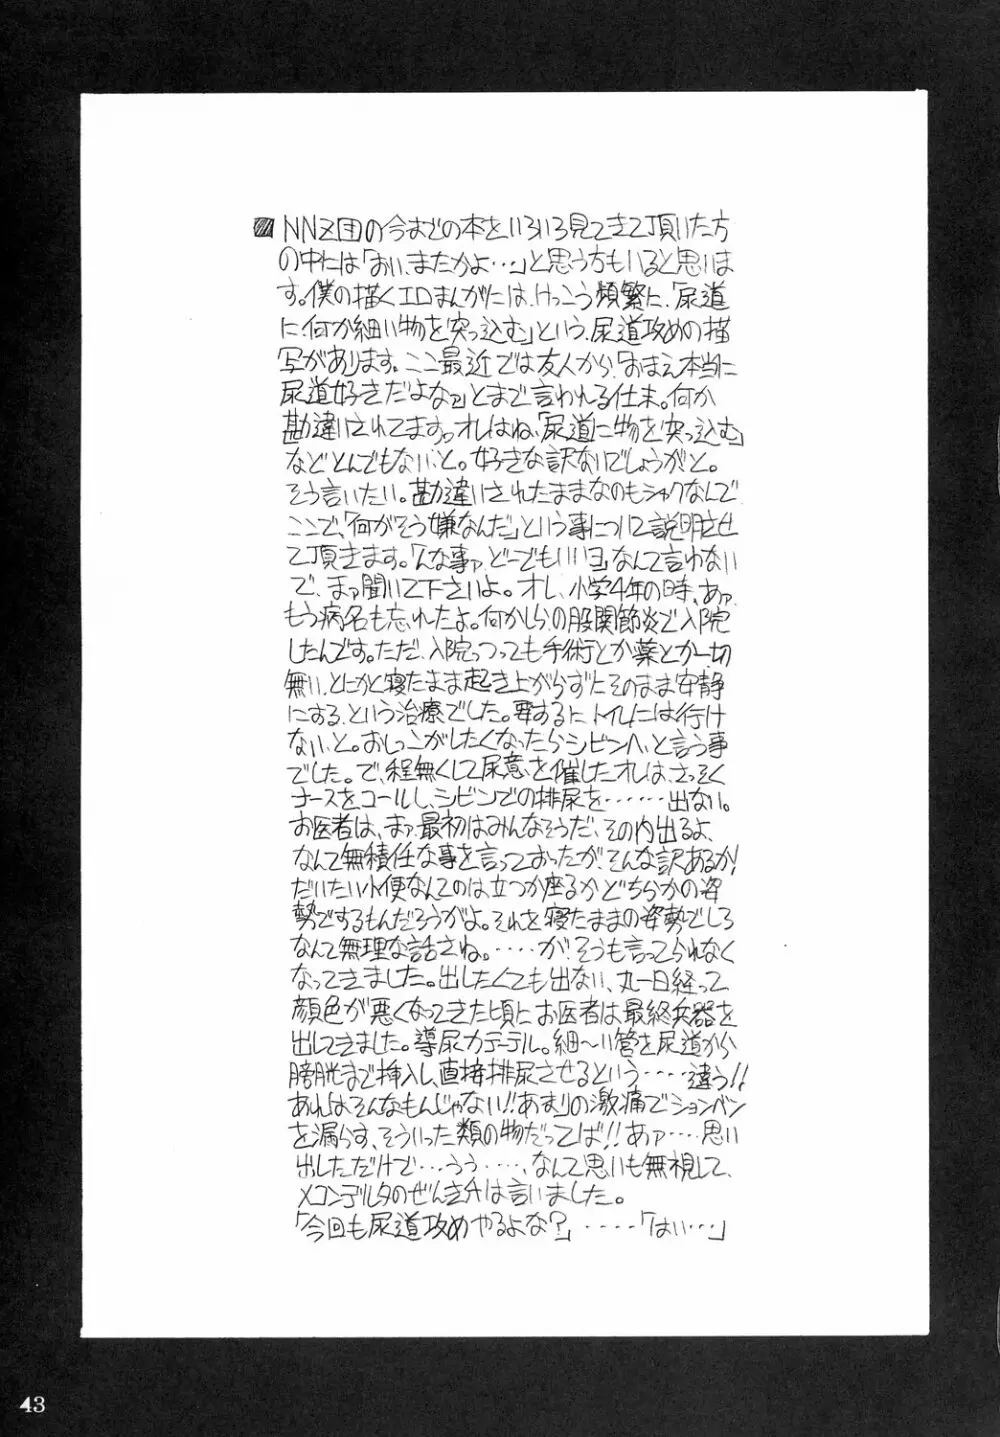 NNZ団の今までの本をいろいろ見てきて頂いた方
の中には「おい、またかよ…」と思う方もいると思いま
す。僕の描くエロまんがには、けっこう頻繁に、「尿道
に何か細い物を突っ込む」という、尿道攻めの描
写があります。ここ最近では友人から、「おまえ本当に
尿道好きだよなァ」とまで言われる仕末。何か
勘違いされてますっ。オレはね、「尿道に物を突っ込む」
などとんでもない、と。好きな訳ないでしょうがと。
そう言いたい。勘違いされたままなのもシャクなんで
ここで、「何がそう嫌なんだ」という事について説明させ
て頂きます。「んな事ァ、どーでもいいヨ」なんて言わない
で、まァ聞いて下さいよ。オレ、小学4年の時、あァ、
もう病名も忘れたよ。何かしらの股関節炎で入院
したんです。ただ、入院っつっても手術とか薬とか一切
無い、とにかく寝たまま起き上がらずにそのまま安静
にする、という治療でした。要するに、トイレには行け
ない、と。おしっこがしたくなったらシビンへ、と言う事
でした。で、程無くして尿意を催したオレは、さっそく
ナースをコールし、シビンでの排尿を……出ない。
お医者は、まァ、最初はみんなそうだ、その内出るよ、
なんて無積任な事を言っておったがそんな訳あるか!
だいたい小便なんてのは立つか座るかどちらかの姿
勢でするもんだろうがよ。それを寝たままの姿勢でしろ
なんて無理な話さね。‥‥が、そうも言ってられなく
なってきました。出したくても出ない、丸一日経って
顔色が悪くなってきた頃に、お医者は最終兵器を
出してきました。導尿カテーテル。細〜い管を尿道から
膀胱まで挿入し、直接排尿させるという‥‥違う!!
あれはそんなもんじゃない!!あまりの激痛でションベン
を漏らす、そういった類の物だってば!!あァ‥‥思い
出しただけで…うう‥‥、なんて思いも無視して、
メコンデルタのぜんきチは言いました。
「今回も尿道攻めやるよな?」‥‥‥「はい…」
43